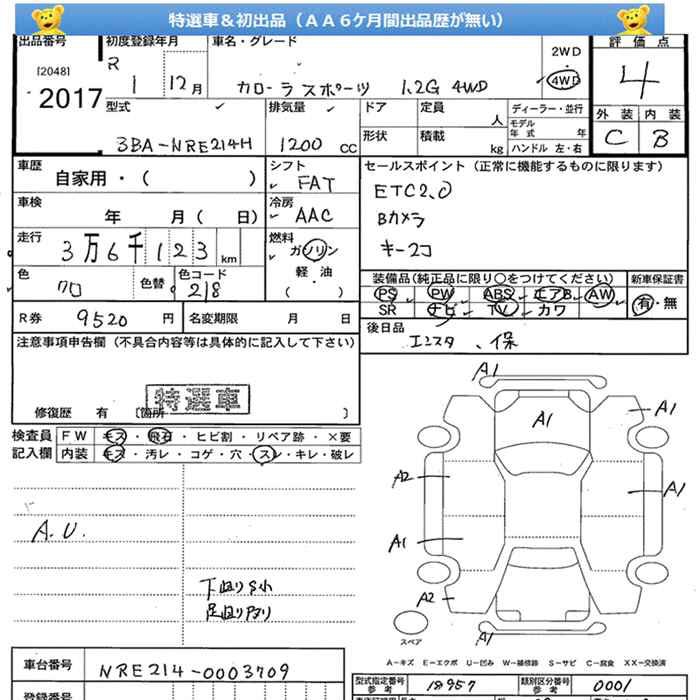 特選車＆初出品（ＡＡ６ケ月間出品歴が無い）
出品番号 初度登録年月 車名・グレード 2WD 評価点
[2048] R 1 12月 カローラスポーツ 1.2G 4WD 4WD 4
2017
型式 排気量 ドア 定員 人 ディーラー・並行 外装 内装
3BA-NRE214H 1200 CC 形状 積載 kg モデル年式 年 ハンドル 左・右 C B
車歴 自家用・( ) シフト FAT セールスポイント（正常に機能するものに限ります）
車検 年 月( 日) 冷房 AAC ETC2.0
Bカメラ
走行 3万6千123km 燃料 ガソリン 軽・油 ( ) キー2コ
色 クロ 色替 色コード 218 装備品(純正品に限り○をつけてください) 新車保証書
PS PW ABS エアB AW 有・無
SR ナビ TV カワ
R券 9520円 名変期限 月 日 後日品
注意事項申告欄（不具合内容等は具体的に記入して下さい） 、保
特選車
修復歴 有 [箇所 ]
検査員記入欄 FW キズ・飛石・ヒビ割・リペア跡・×要
内装 キズ・汚レ・コゲ・穴・スレ・キレ・破レ
A1
A1 A1
A2 A1
A1
A2
A.U.
下廻りS小
足廻りアリ
スペア A1
A－キズ E－エクボ U－凹み W－補修跡 S－サビ C－腐食 XX－交換済
車台番号 NRE214-0003709 型式指定番号 参考 18957 類別区分番号 参考 0001
登録番号